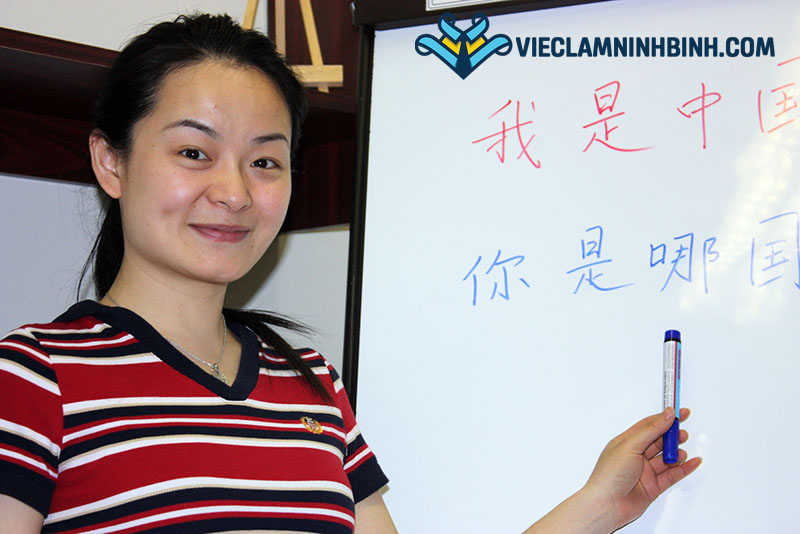 VIECLAMNINHBINH.COM
我是中国
你是哪国